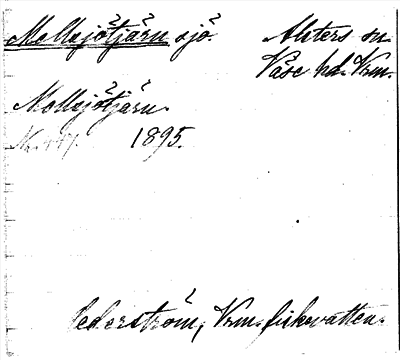 Mollsjötjärn sjö. Alsters sn.
Väse hd. Vrm.
Mollsjötjärn.
1895.
Cederström, Vrm. fiskvatten.